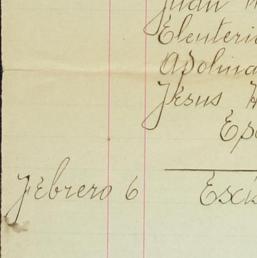 Juan
Eleuteri
Apolina
Jesus H
Epe
Febrero 6 Escis